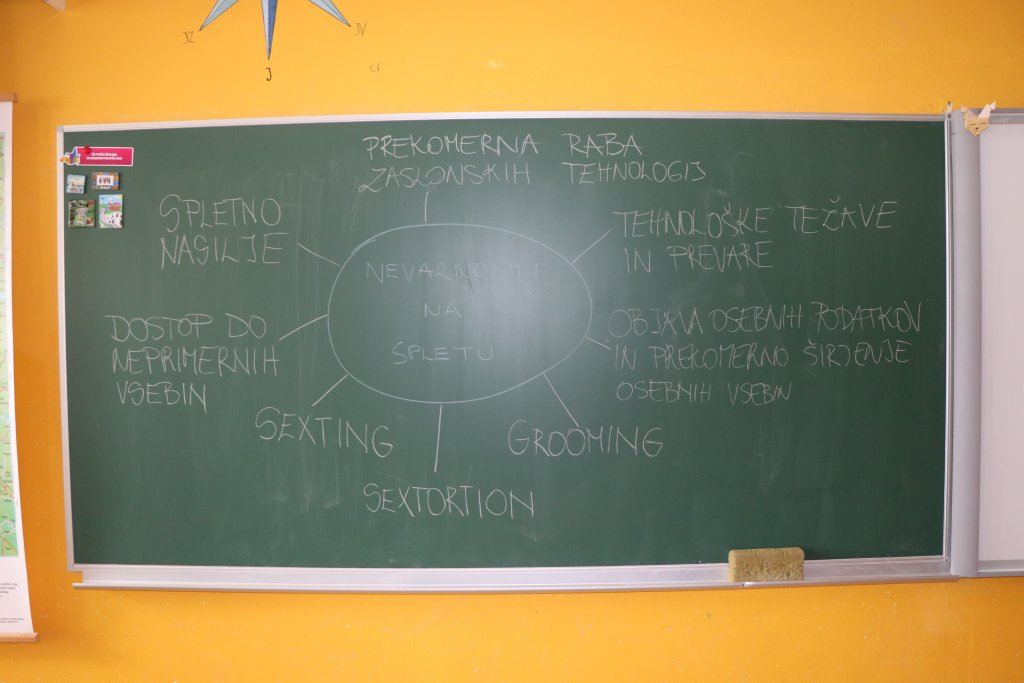 JZ
JV
J
PREKOMERNA RABA
ZASLONSKIH TEHNOLOGIJ
SPLETNO
NASILJE
TEHNOLOŠKE TEŽAVE
IN PREVARE
NEVARNOSTI
NA
SPLETU
DOSTOP DO
NEPRIMERNIH
VSEBIN
OBJAVA OSEBNIH PODATKOV
IN PREKOMERNO ŠIRJENJE
OSEBNIH VSEBIN
SEXTING
GROOMING
SEXTORTION